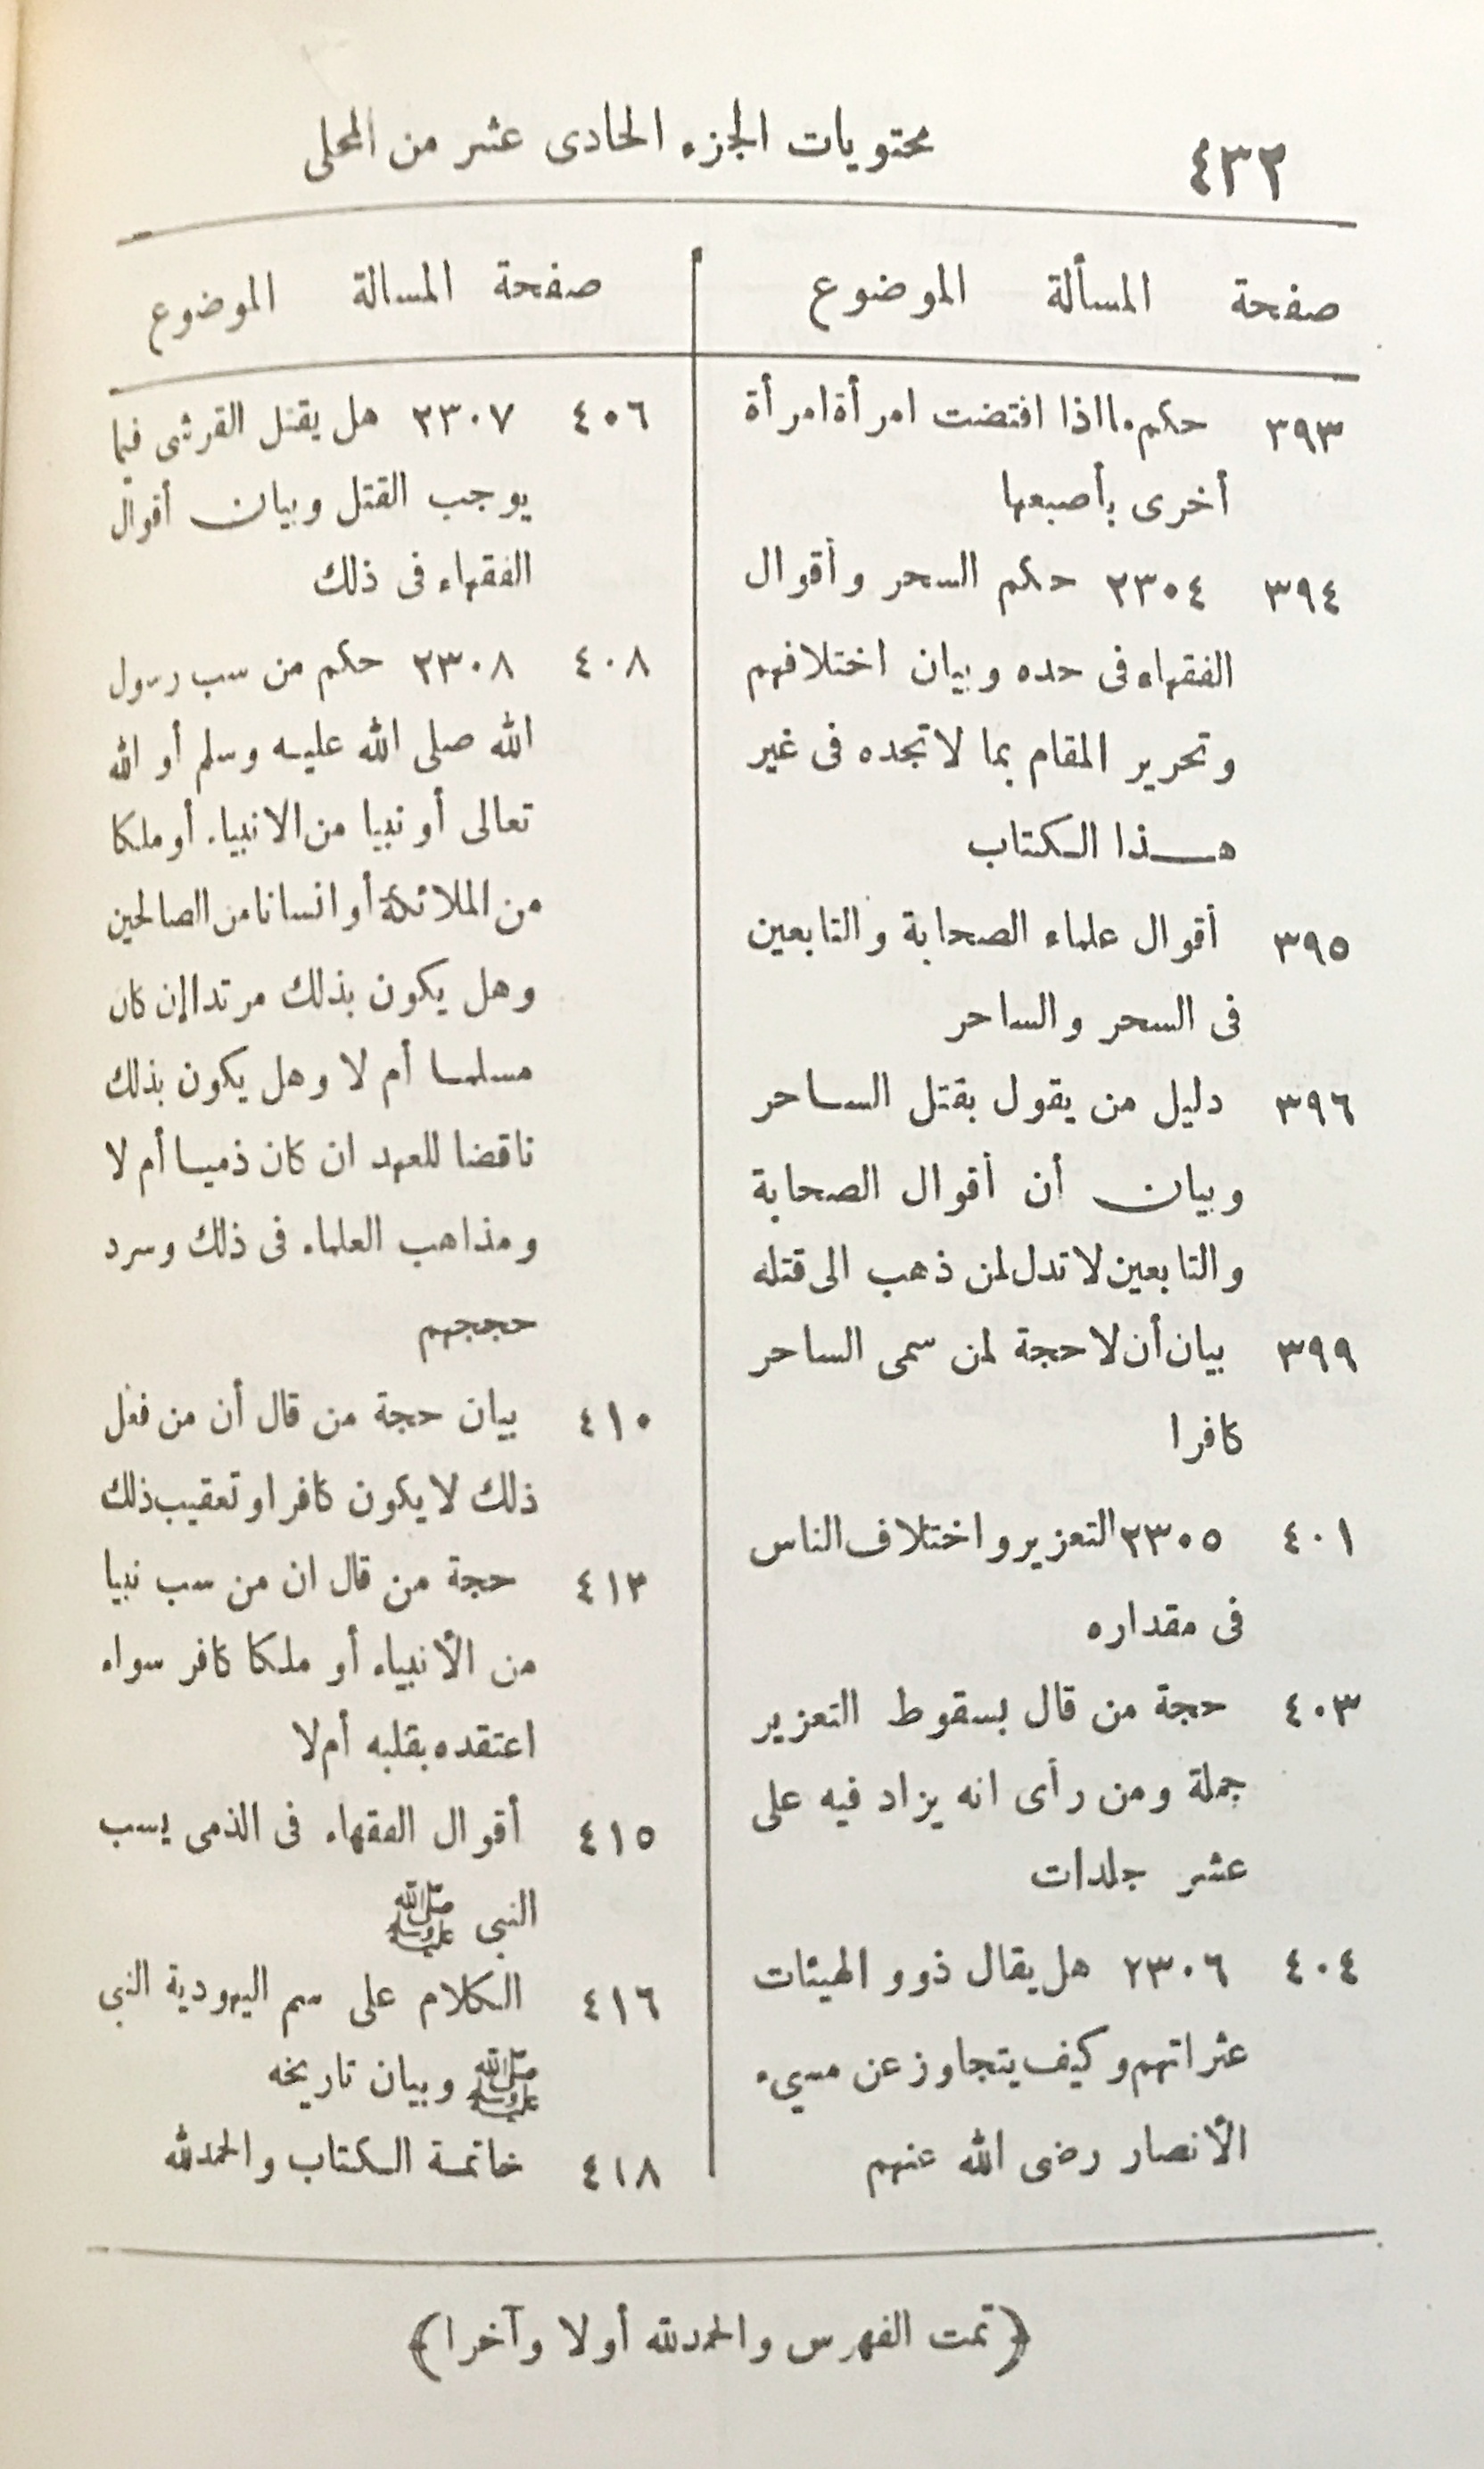 ٤٣٢ محتويات الجزء الحادى عشر من المحلى
صفحة المسألة الموضوع
٣٩٣ حكم ما اذا افتضت امرأة امرأة
أخرى بأصبعها
٣٩٤ ٢٣٠٤ حكم السحر وأقوال
الفقهاء فى حده وبيان اختلافهم
وتحرير المقام بما لا تجده فى غير
هـــذا الكتاب
٣٩٥ أقوال علماء الصحابة والتابعين
فى السحر والساحر
٣٩٦ دليل من يقول بقتل الساحر
وبيان أن أقوال الصحابة
والتابعين لا تدل لمن ذهب الى قتله
٣٩٩ بيان أن لا حجة لمن سمى الساحر
كافرا
٤٠١ ٢٣٠٥ التعزير واختلاف الناس
فى مقداره
٤٠٣ حجة من قال بسقوط التعزير
جملة ومن رأى انه يزاد فيه على
عشر جلدات
٤٠٤ ٢٣٠٦ هل يقال ذوو الهيئات
عثراتهم وكيف يتجاوز عن مسيء
الأنصار رضى الله عنهم
صفحة المسالة الموضوع
٤٠٦ ٢٣٠٧ هل يقتل القرشى فيما
يوجب القتل وبيان أقوال
الفقهاء فى ذلك
٤٠٨ ٢٣٠٨ حكم من سب رسول
الله صلى الله عليه وسلم أو الله
تعالى أو نبيا من الانبياء أو ملكا
من الملائكة أو انسانا من الصالحين
وهل يكون بذلك مرتدا إن كان
مسلما أم لا وهل يكون بذلك
ناقضا للعهد ان كان ذميا أم لا
ومذاهب العلماء فى ذلك وسرد
حججهم
٤١٠ بيان حجة من قال أن من فعل
ذلك لا يكون كافرا وتعقيب ذلك
٤١٣ حجة من قال ان من سب نبيا
من الأنبياء أو ملكا كافر سواء
اعتقده بقلبه أم لا
٤١٥ أقوال الفقهاء فى الذمى يسب
النبى ﷺ
٤١٦ الكلام على سم اليهودية النبى
ﷺ وبيان تاريخه
٤١٨ خاتمة الكتاب والحمد لله
﴿تمت الفهرس والحمد لله أولا وآخرا﴾